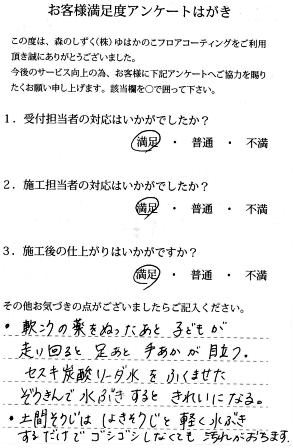 お客様満足度アンケートはがき
この度は、森のしずく(株)ゆはかのこフロアコーティングをご利用
頂き誠にありがとうございました。
今後のサービス向上の為、お客様に下記アンケートへご協力を賜り
たくお願い申し上げます。該当欄を○で囲って下さい。
1．受付担当者の対応はいかがでしたか？
満足 ・ 普通 ・ 不満
2．施工担当者の対応はいかがでしたか？
満足 ・ 普通 ・ 不満
3．施工後の仕上がりはいかがですか？
満足 ・ 普通 ・ 不満
その他お気づきの点がございましたらご記入ください。
・軟こうの薬をぬったあと 子どもが
走い回ると 足あと 手あかが目立つ。
セスキ炭酸ソーダ水を ふくませた
ぞうきんで 水ぶきすると きれいになる。
・土間そうじは はきそうじと 軽く水ぶき
するだけで ゴシゴシしなくても おちます